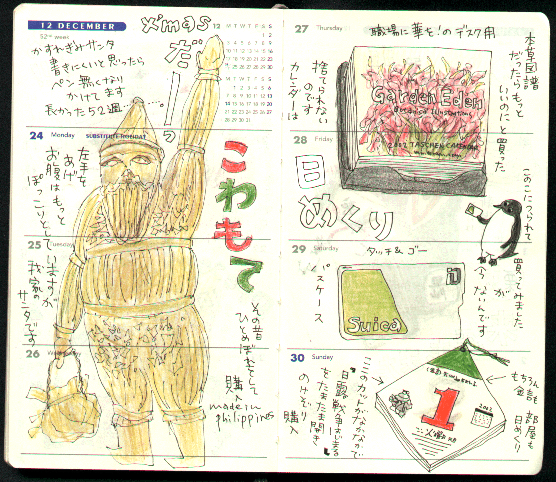 12 DECEMBER
52nd week
x'mas
だーっ
12 M T W T F S S
かすれぎみサンタ
書きにくいと思ったら
ペン無くなり
かけてます
長かった52週…
24 Monday
SUBSTITUTE HOLIDAY
左手を
あげ
お腹はもっと
ぽっこりとしていますが
我家の
サンタです
こわもて
25 Tuesday
26 Wednesday
その昔
ひとめぼれをして
購入
made in
philippines
27 Thursday
職場に華を!のデスク用
捨てられない
のです
カレンダーは
Garden Eden
Botanical Illustrations
2002 TASCHEN CALENDAR
本草図譜
だったらもっと
いいのにと買った
28 Friday
日めくり
このこにつられて
買ってみました
が
今ないんです
29 Saturday
タッチ&ゴー
パスケース
Suica
30 Sunday
ここのカットがなかなかで
日露戦争はじまる
をたまたま開き
のみぞり
購入
1
火曜日
2002
もちろん
今年も
部屋も
日めくり